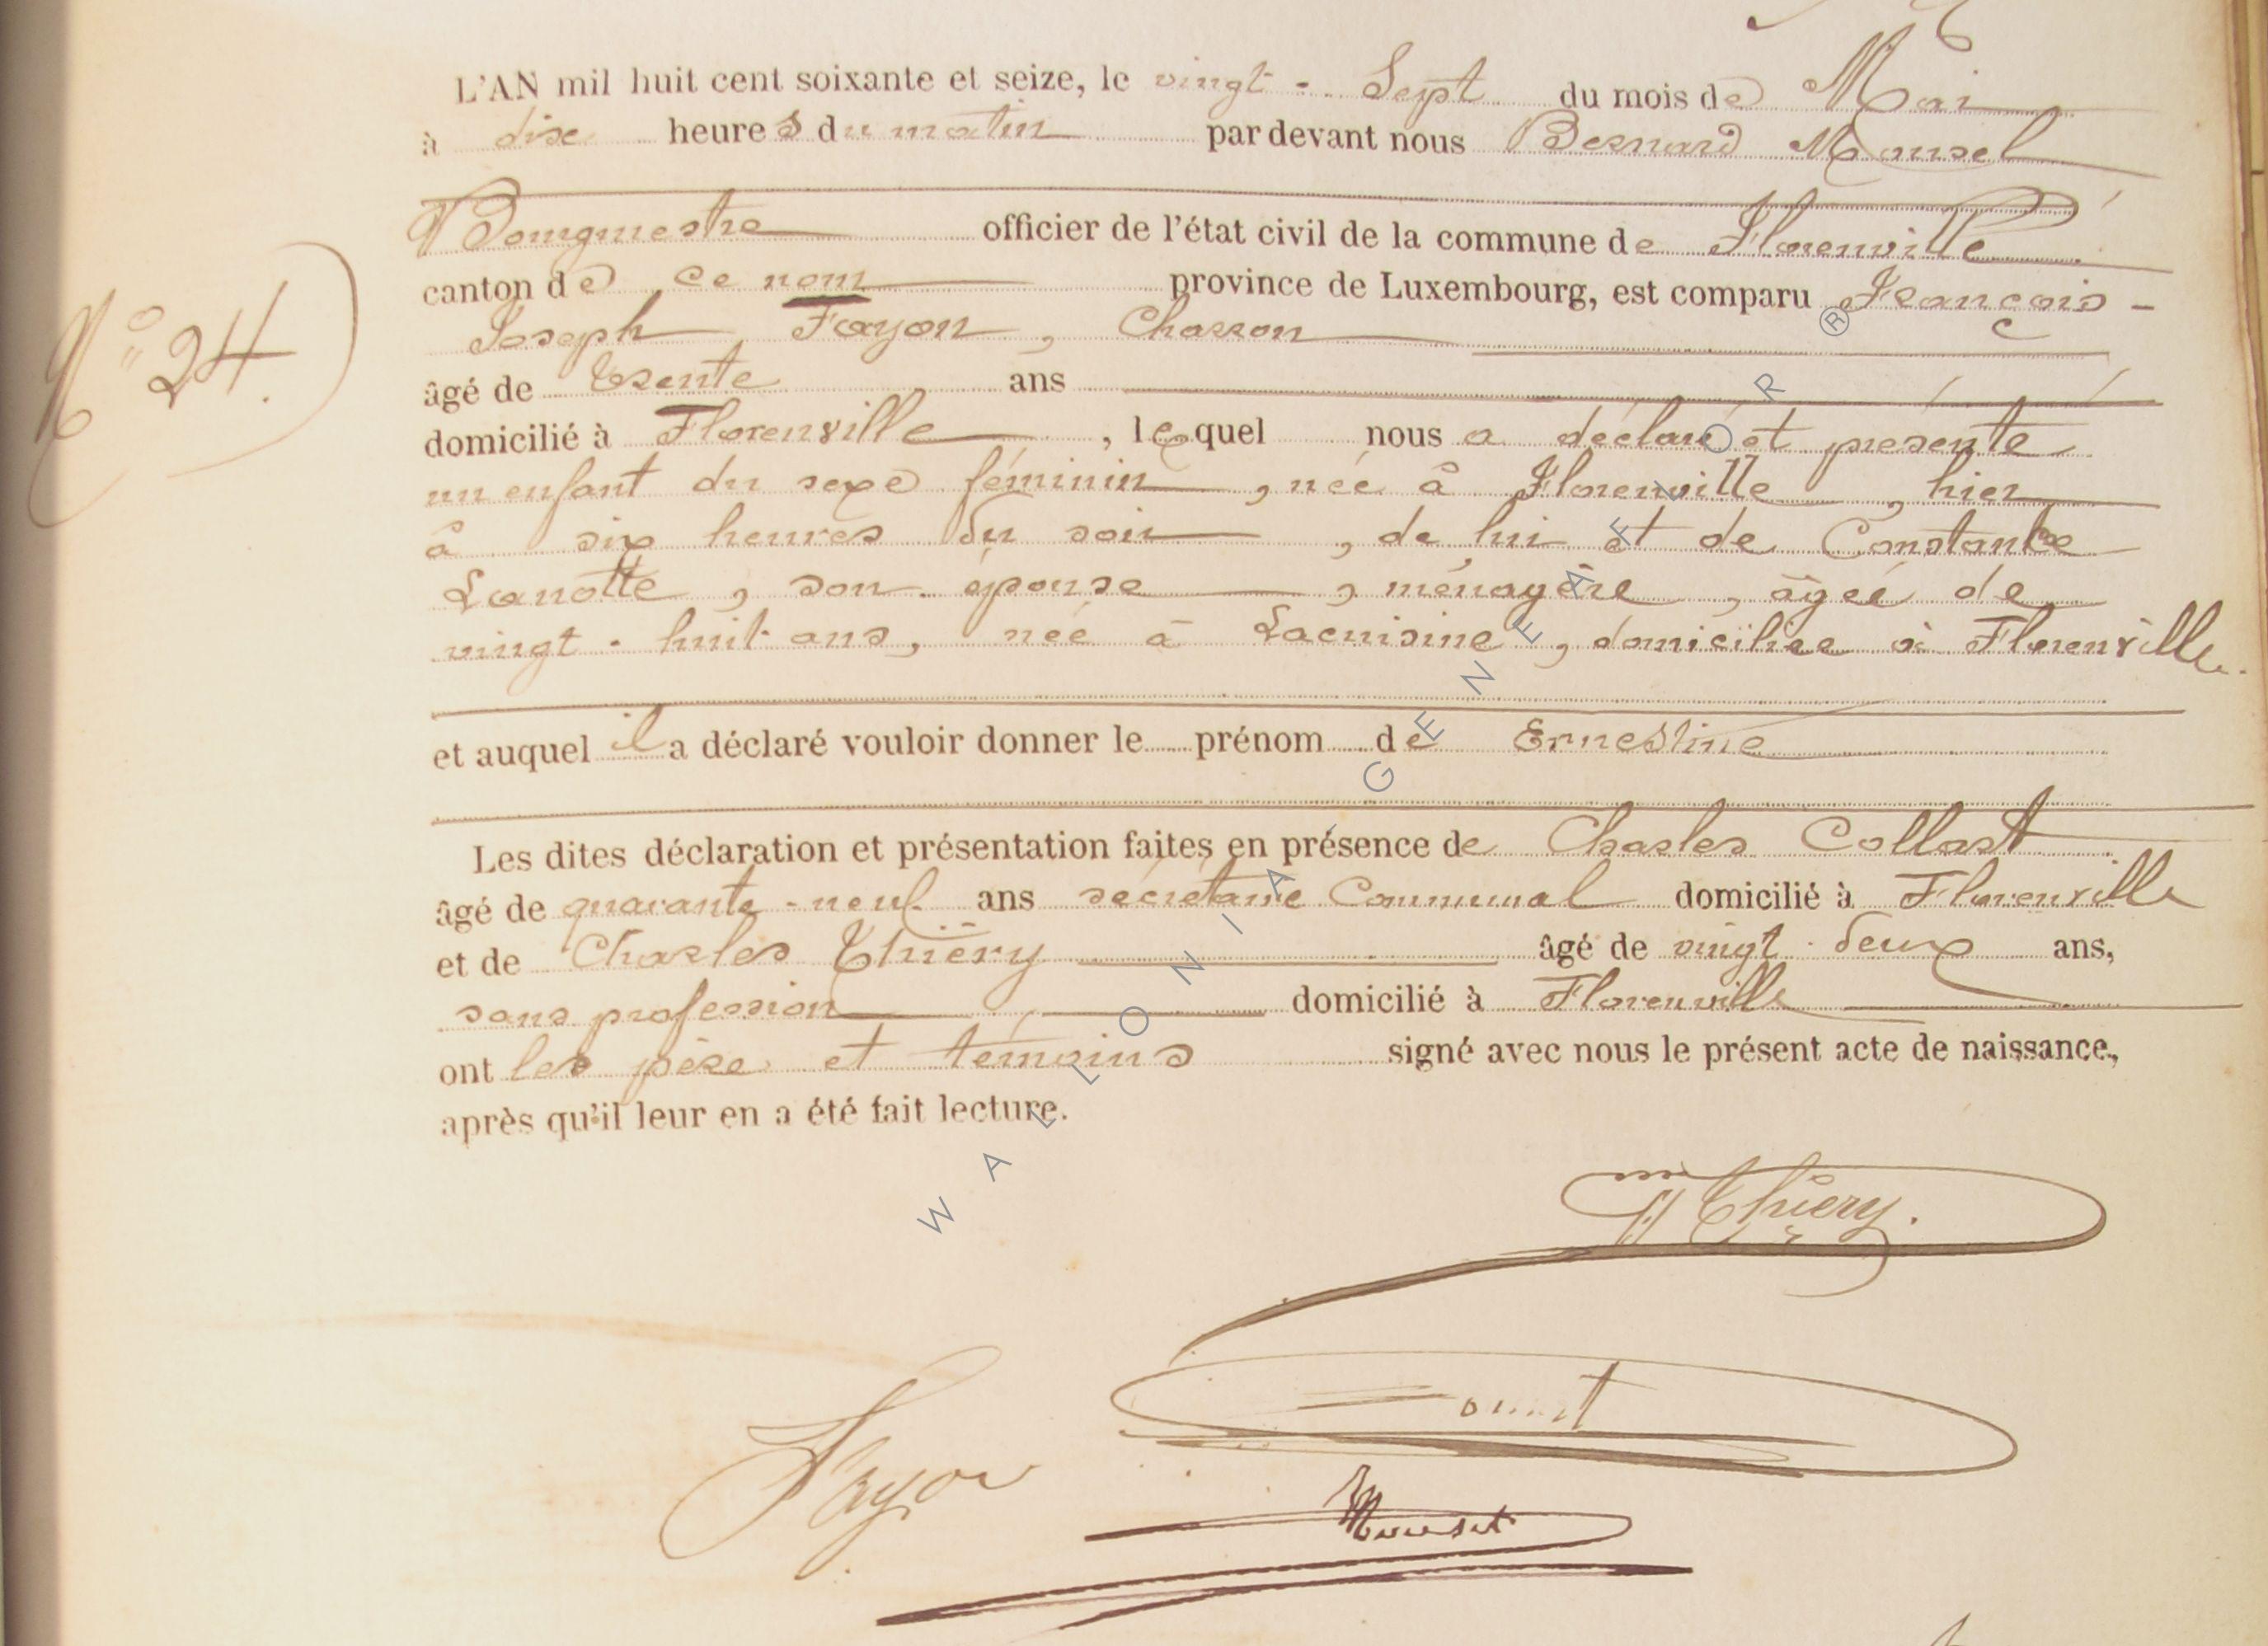 L'AN mil huit cent soixante et seize, le vingt-Sept du mois de Mai
à dix heures du matin par devant nous Bernard Mousel
Bourgmestre officier de l'état civil de la commune de Florenville
canton de ce nom province de Luxembourg, est comparu François-
Joseph Fayon, Charron
âgé de trente ans
domicilié à Florenville, lequel nous a déclaré et présenté
N° 24.
un enfant du sexe féminin, née à Florenville, hier
à six heures du soir, de lui et de Constance
Lanotte, son épouse, ménagère, âgée de
vingt-huit ans, née à Lacuisine, domiciliée à Florenville.
et auquel il a déclaré vouloir donner le prénom de Ernestine
Les dites déclaration et présentation faites en présence de Charles Collart
âgé de quarante-neuf ans secrétaire Communal domicilié à Florenville
et de Charles Thiéry âgé de vingt-deux ans,
sans profession domicilié à Florenville
ont les père et témoins signé avec nous le présent acte de naissance,
après qu'il leur en a été fait lecture.
Thiery.
Fayon
WALLONIA GENEALOR®